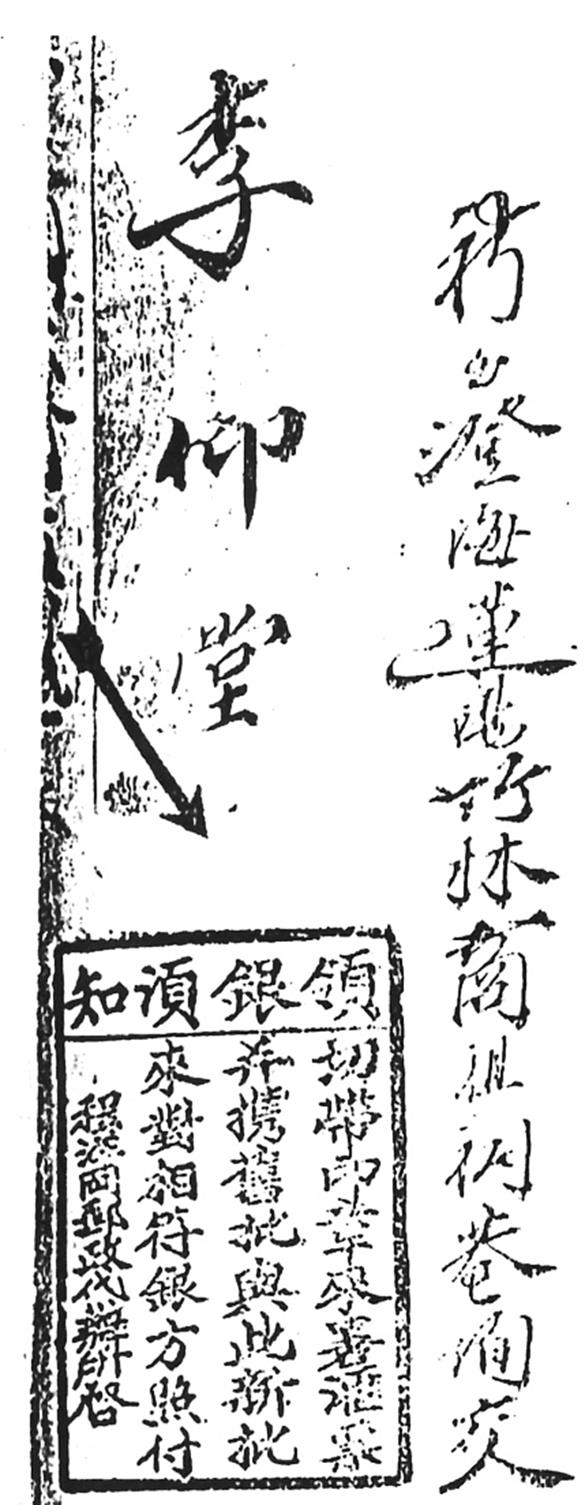 澄海蓮陽竹林商祖祠巷內交
李仰堂
領銀須知
切帶印章來蓋匯票
并携舊批與此新批
來對相符銀方照付
程洋岡郵政代辦所啓